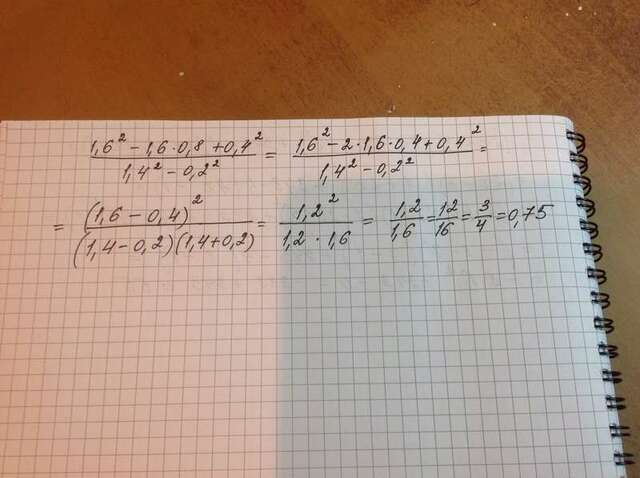 (1,6² − 1,6·0,8 + 0,4²)/(1,4² − 0,2²) = (1,6² − 2·1,6·0,4 + 0,4²)/(1,4² − 0,2²) =
= (1,6 − 0,4)²/((1,4 − 0,2)(1,4 + 0,2)) = 1,2²/(1,2 · 1,6) = 1,2/1,6 = 12/16 = 3/4 = 0,75